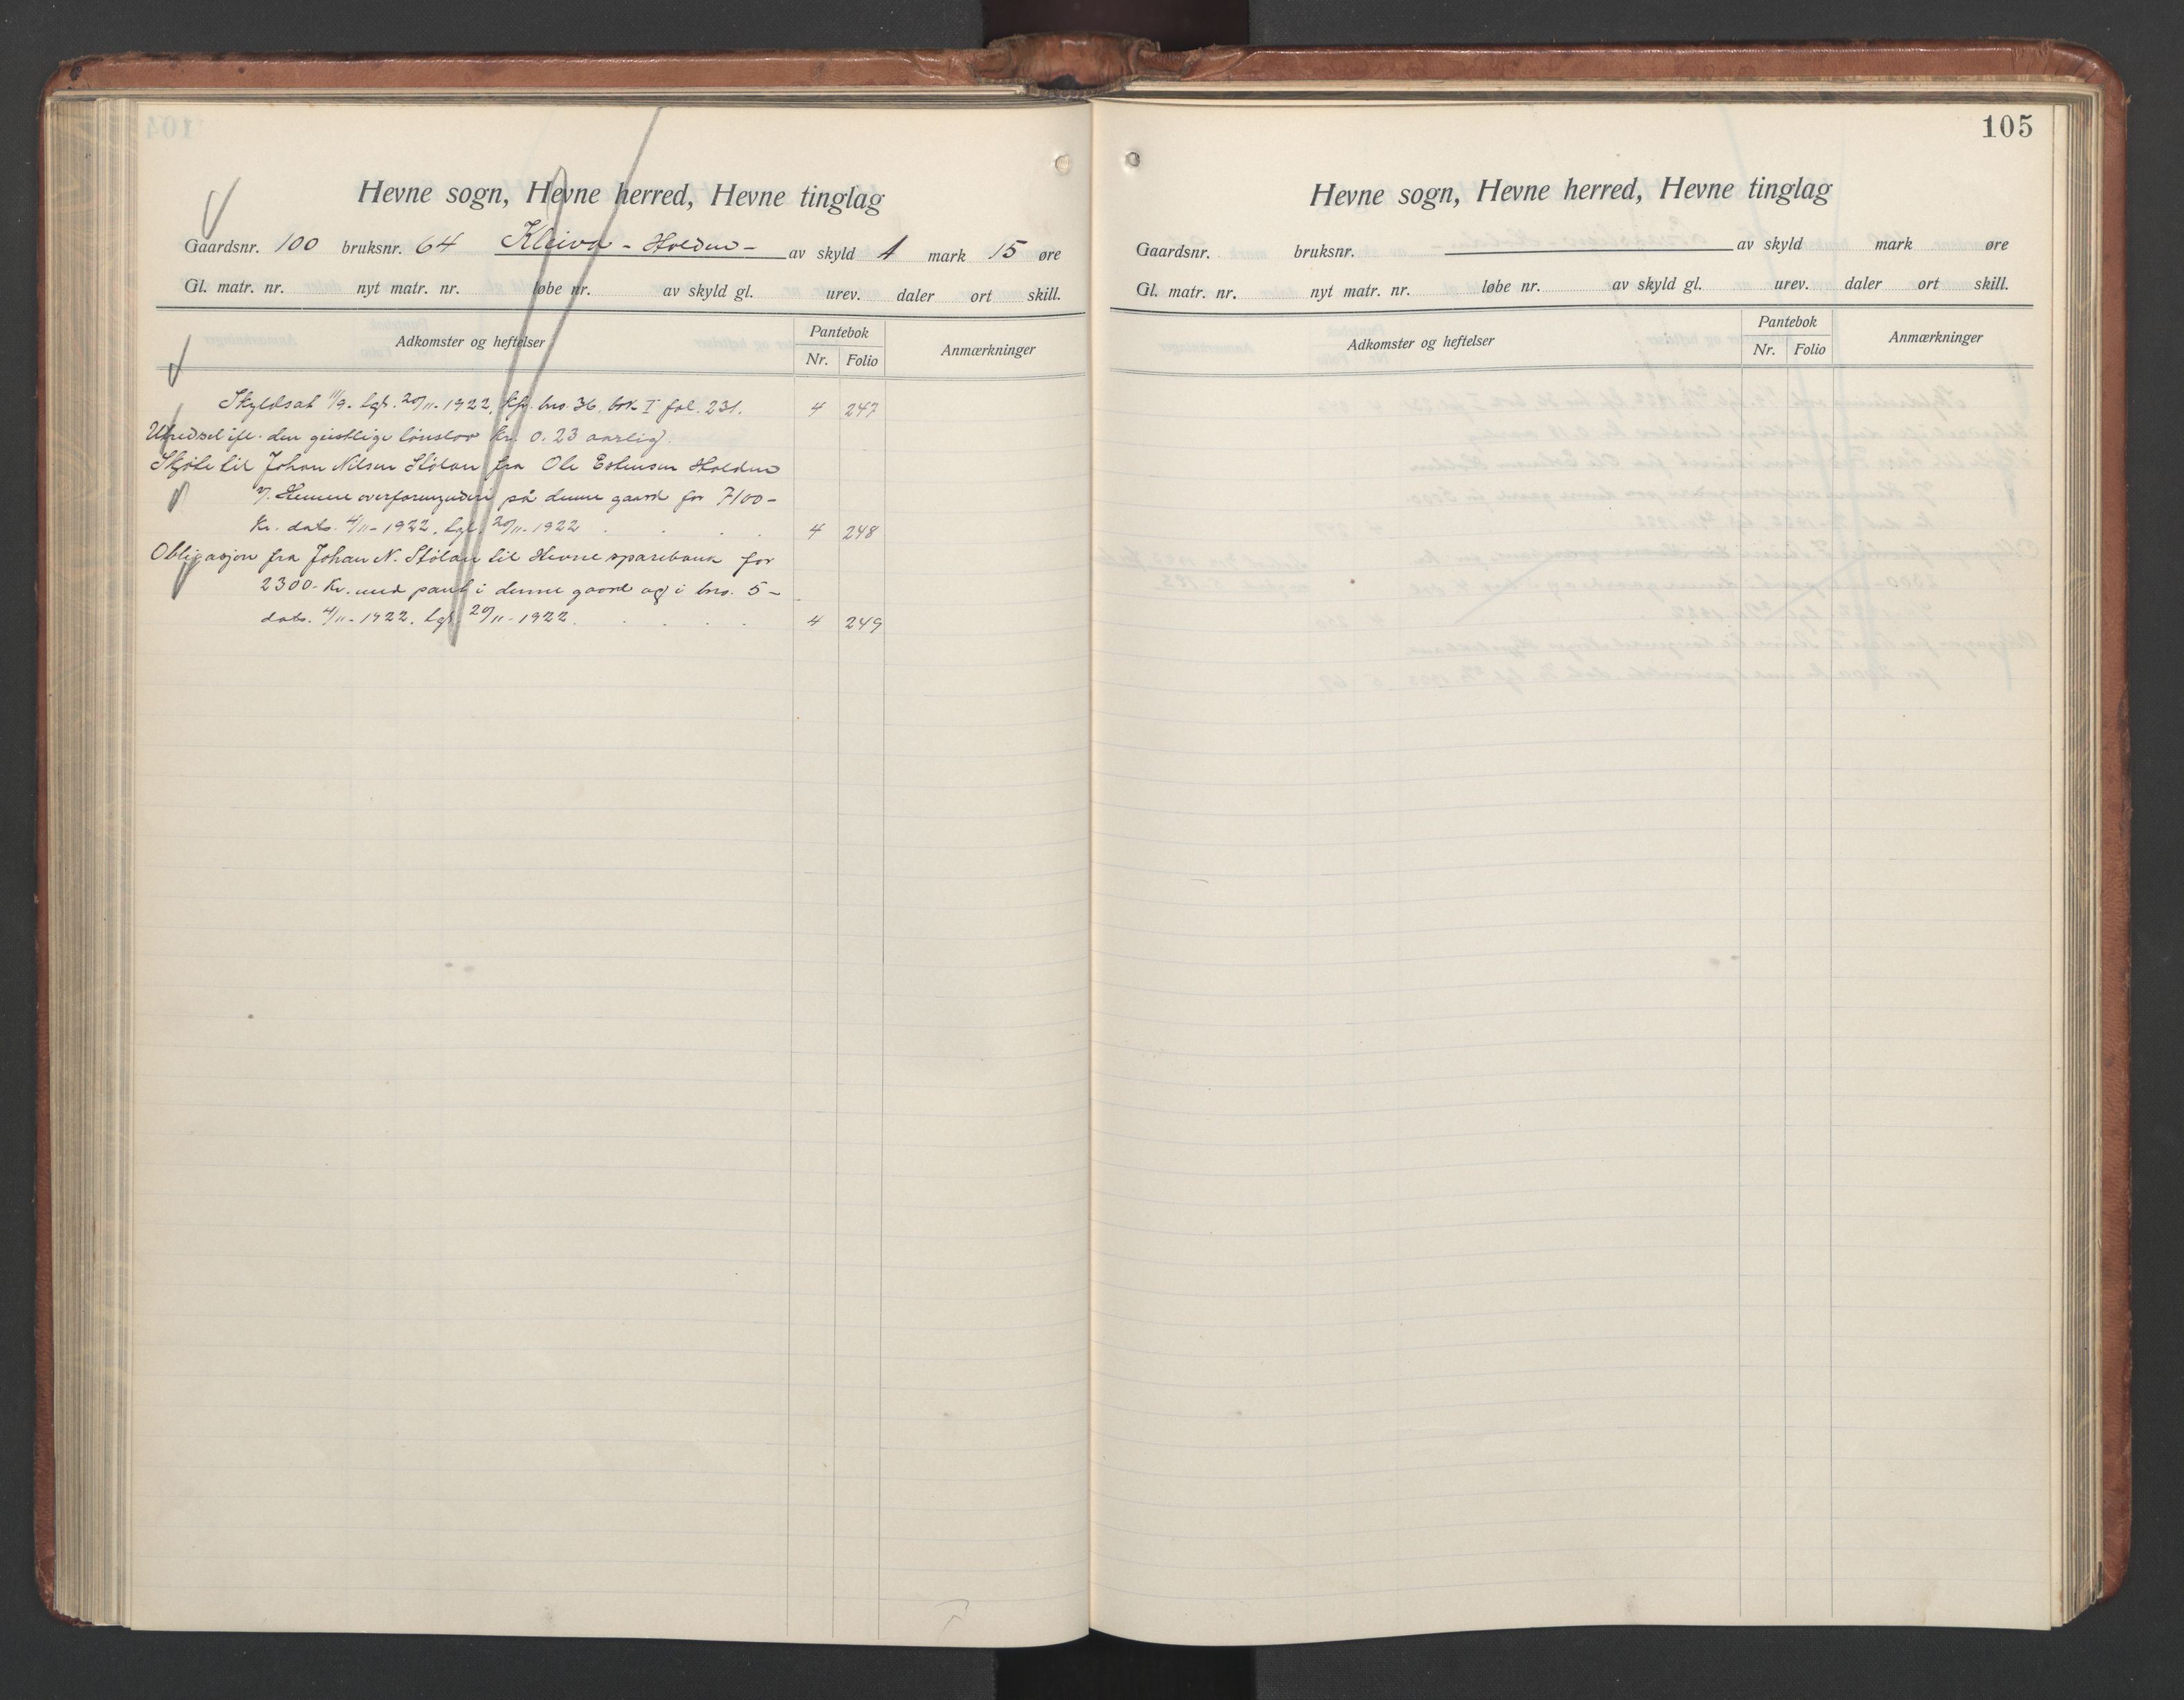 Hevne sogn, Hevne herred, Hevne tinglag
Gaardsnr. 100 bruksnr. 64 Kleiva - Holden - av skyld 1 mark 15 øre
Gl. matr. nr. nyt matr. nr. løbe nr. av skyld gl. urev. daler ort skill.
Adkomster og heftelser Pantebok Anmærkninger
Nr. Folio
Skyldsat 11/9. lgt. 20/11-1922, kfr. bno. 36. bok I fol. 231. 4 247
Utredsel ifl. den geistlige lønslov kr. 0.23 aarlig.
Skjøte til Johan Nilsen Stølan fra Ole Estensen Holden
v/ Hemne overformynderi på denne gaard for 7100-
kr. dat. 4/11-1922. lgt. 20/11-1922 4 248
Obligasjon fra Johan N. Stølan til Hevne sparebank for
2300- kr. med pant i denne gaard og i bno. 5-
dat. 4/11-1922. lgt. 20/11-1922. 4 249
105
Hevne sogn, Hevne herred, Hevne tinglag
Gaardsnr. bruksnr. av skyld mark øre
Gl. matr. nr. nyt matr. nr. løbe nr. av skyld gl. urev. daler ort skill.
Adkomster og heftelser Pantebok Anmærkninger
Nr. Folio